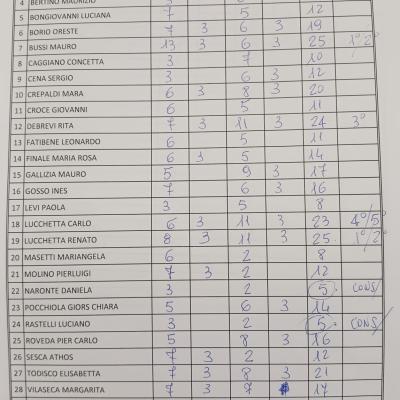 4 BERTINO MAURIZIO
5 BONGIOVANNI LUCIANA 7 5 12
6 BORIO ORESTE 7 3 6 3 19
7 BUSSI MAURO 13 3 6 3 25 1°2°
8 CAGGIANO CONCETTA 3 7 10
9 CENA SERGIO 3 6 3 12
10 CREPALDI MARA 6 3 8 3 20
11 CROCE GIOVANNI 6 5 11
12 DEBREVI RITA 7 3 11 3 24 3°
13 FATIBENE LEONARDO 6 5 11
14 FINALE MARIA ROSA 6 3 5 14
15 GALLIZIA MAURO 5 9 3 17
16 GOSSO INES 7 6 3 16
17 LEVI PAOLA 3 5 8
18 LUCCHETTA CARLO 6 3 11 3 23 4°/5°
19 LUCCHETTA RENATO 8 3 11 3 25 1°/2°
20 MASETTI MARIANGELA 6 2 8
21 MOLINO PIERLUIGI 7 3 2 12
22 NARONTE DANIELA 3 2 5 CONS/
23 POCCHIOLA GIORS CHIARA 5 6 3 14
24 RASTELLI LUCIANO 3 2 5 CONS/
25 ROVEDA PIER CARLO 5 8 3 16
26 SESCA ATHOS 7 3 2 12
27 TODISCO ELISABETTA 7 3 8 3 21
28 VILASECA MARGARITA 7 3 7 17